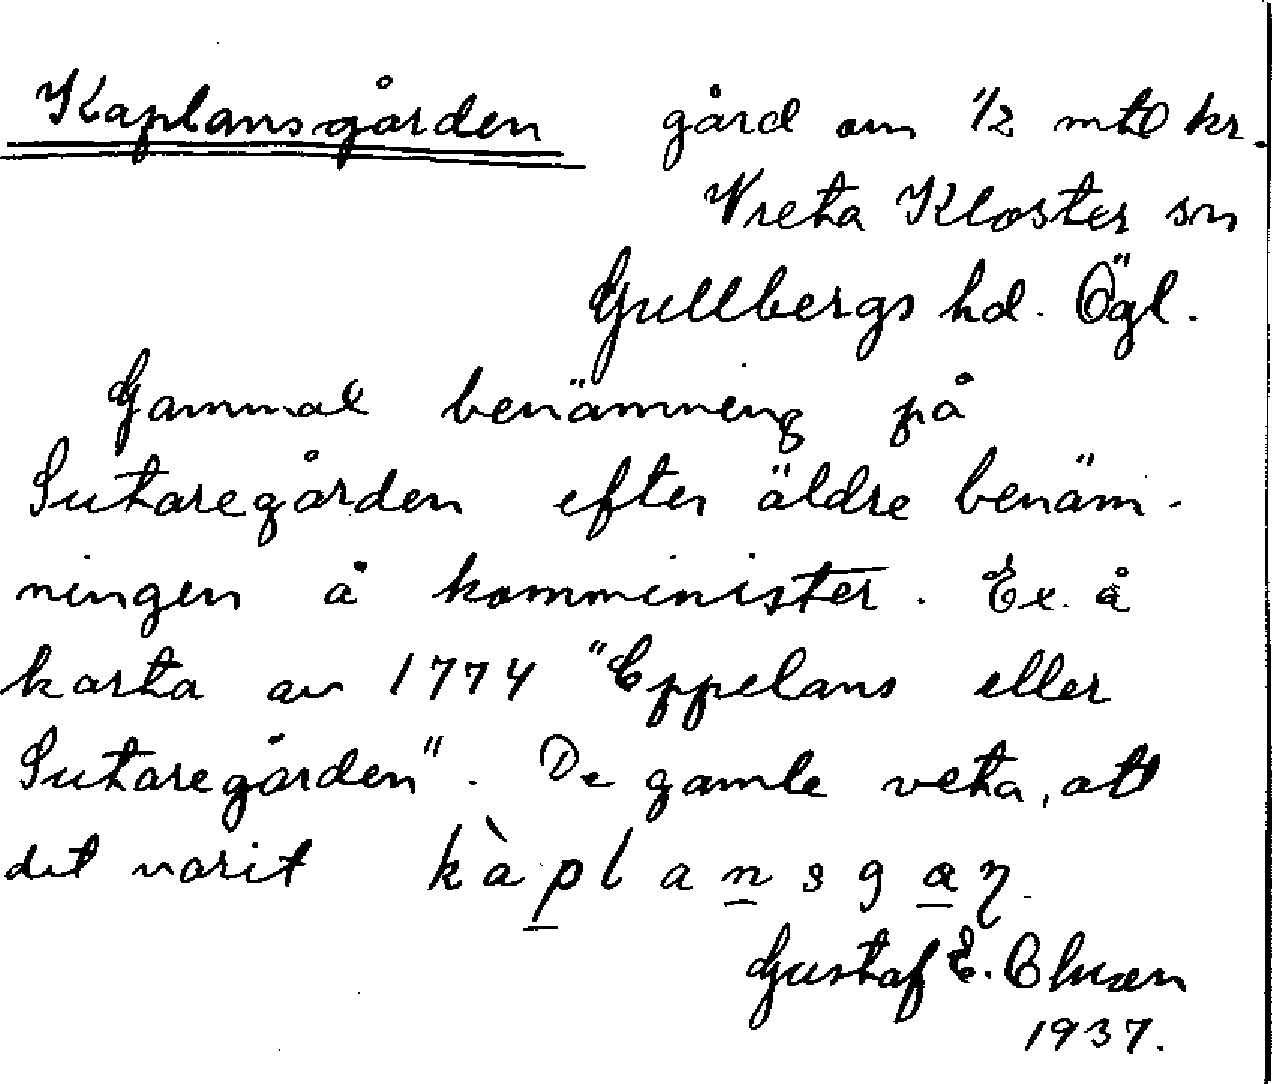 Kaplansgården gård om 1/2 mtl kr.
Vreta Kloster sn
Gullbergs hd. Ögl.
Gammal benämning på
Sutaregården efter äldre benäm-
ningen å komminister. Ex. å
karta av 1774 "Eppelans eller
Sutaregården". De gamle veta, att
det varit kàplansgaɳ.
Gustaf E.
1937.